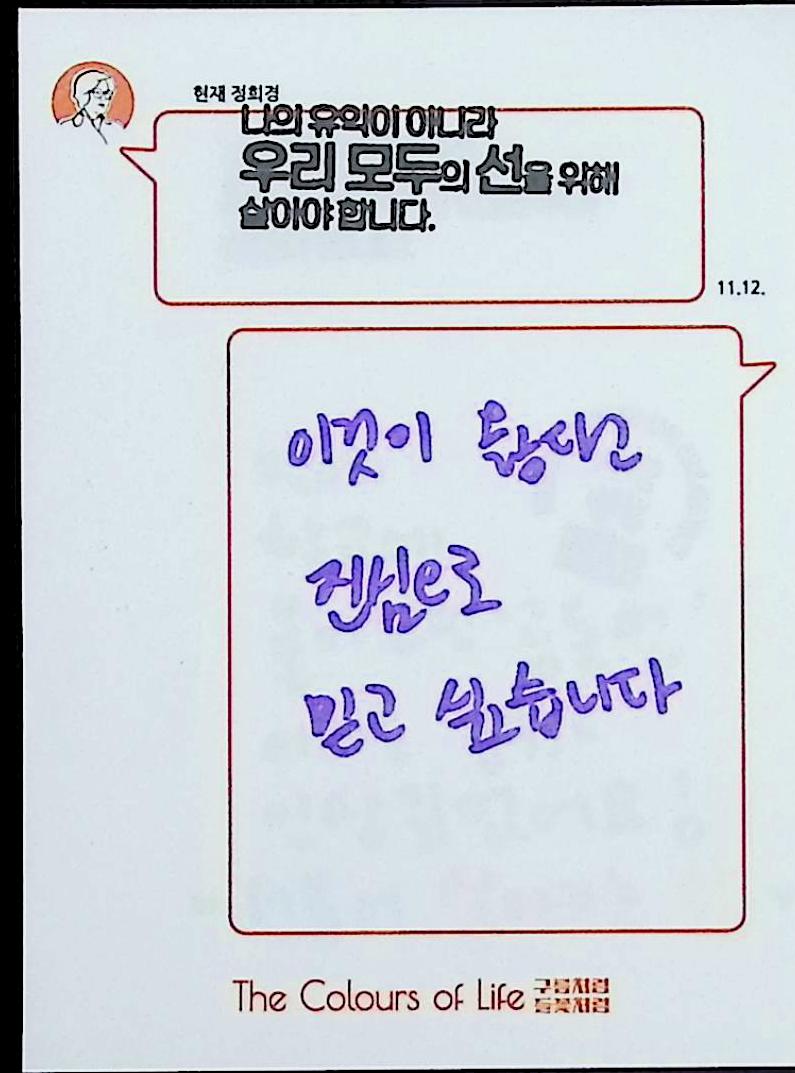 현재 정희경
나의 유익이 아니라
우리 모두의 선을 위해
살아야 합니다.
11.12.
이것이 옳다고
진심으로
믿고 싶습니다
The Colours of Life 구름처럼
들꽃처럼